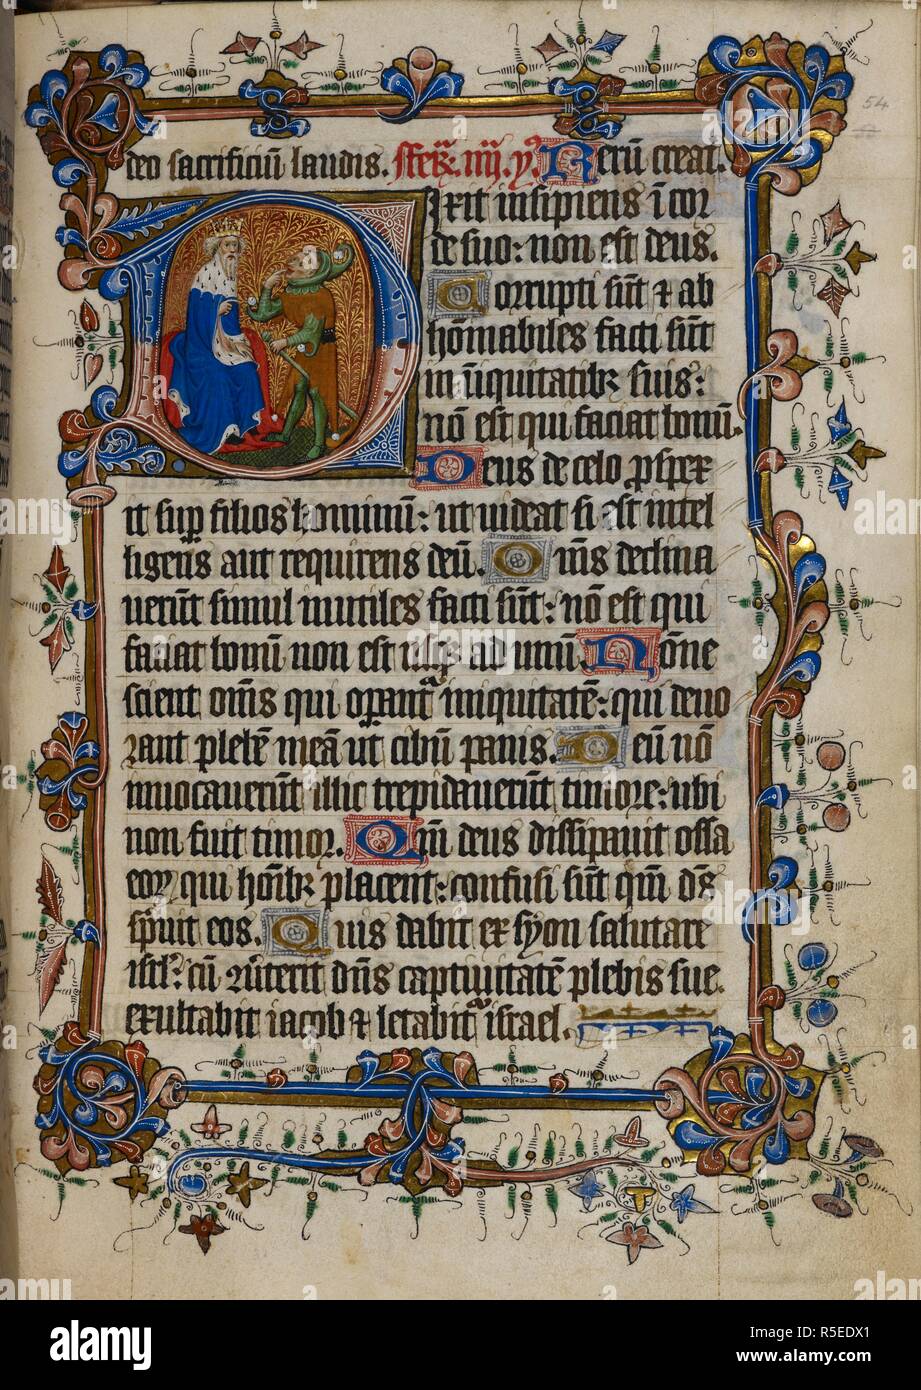 54
deo sacrificiū laudis. fer. iiij. ps Rerū creat.
Dixit insipiens ī cor
de suo: non est deus.
Corrupti sūt ⁊ ab
hominabiles facti sūt
in īiquitatibꝫ suis:
nō est qui faciat bonū.
Deus de celo ꝓspex
it suꝑ filios hominum: ut uideat si est intel
ligens aut requirens deū. Om̄s declina
uerūt simul inutiles facti sūt: nō est qui
faciat bonū non est usqꝫ ad unū. Nōne
scient om̄s qui oꝑant᷑ iniquitatē: qui deuo
rant plebē meā ut cibū panis. Deū nō
inuocauerūt illic trepidauerūt timore: ubi
non fuit timor. Qm̄ deus dissipauit ossa
eoꝝ qui hōibꝫ placent: confusi sūt qm̄ dn̄s
sp̄uit eos. Quis dabit ex syon salutare
isrl̄: cū 9ūterit dn̄s captiuitatē plebis sue.
exultabit iacob ⁊ letabit᷑ israel.
a
alamy
alamy
Image ID: R5EDX1
www.alamy.com